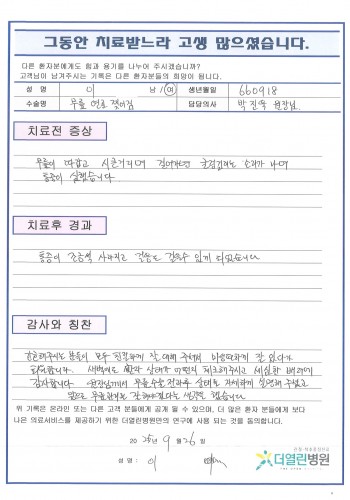 그동안 치료받느라 고생 많으셨습니다.
다른 환자분에게도 힘과 용기를 나누어 주시겠습니까?
고객님이 남겨주시는 기록은 다른 환자분들의 희망이 됩니다.
성 명 이 남/여 생년월일 660918
수술명 무릎 연골 찢어짐 담당의사 박진욱 원장님
치료전 증상
무릎이 아프고 시큰거리며 걸어다니면 소리가 나며
통증이 심했습니다
치료후 경과
통증이 조금씩 사라지고 걸음도 걸을수 있게 되었습니다
감사와 칭찬
간호해주시는 분들이 모두 친절하게 잘 대해 주셔서 마음편하게 잘 있다가
퇴원합니다. 새벽에도 환자 상태가 어떤지 체크해주시고 세심한 배려에
감사합니다. 원장님께서 무릎수술 전과후 상태도 자세하게 설명해 주셨고
앞으로 무릎관리도 잘 해야겠다는 생각을 했습니다
위 기록은 온라인 또는 다른 고객 분들에게 공개 될 수 있으며, 더 많은 환자 분들에게 보다
나은 의료서비스를 제공하기 위한 더열린병원만의 연구에 사용 되는 것을 동의합니다.
2025년 9월 26일
성 명 : 이
더열린병원